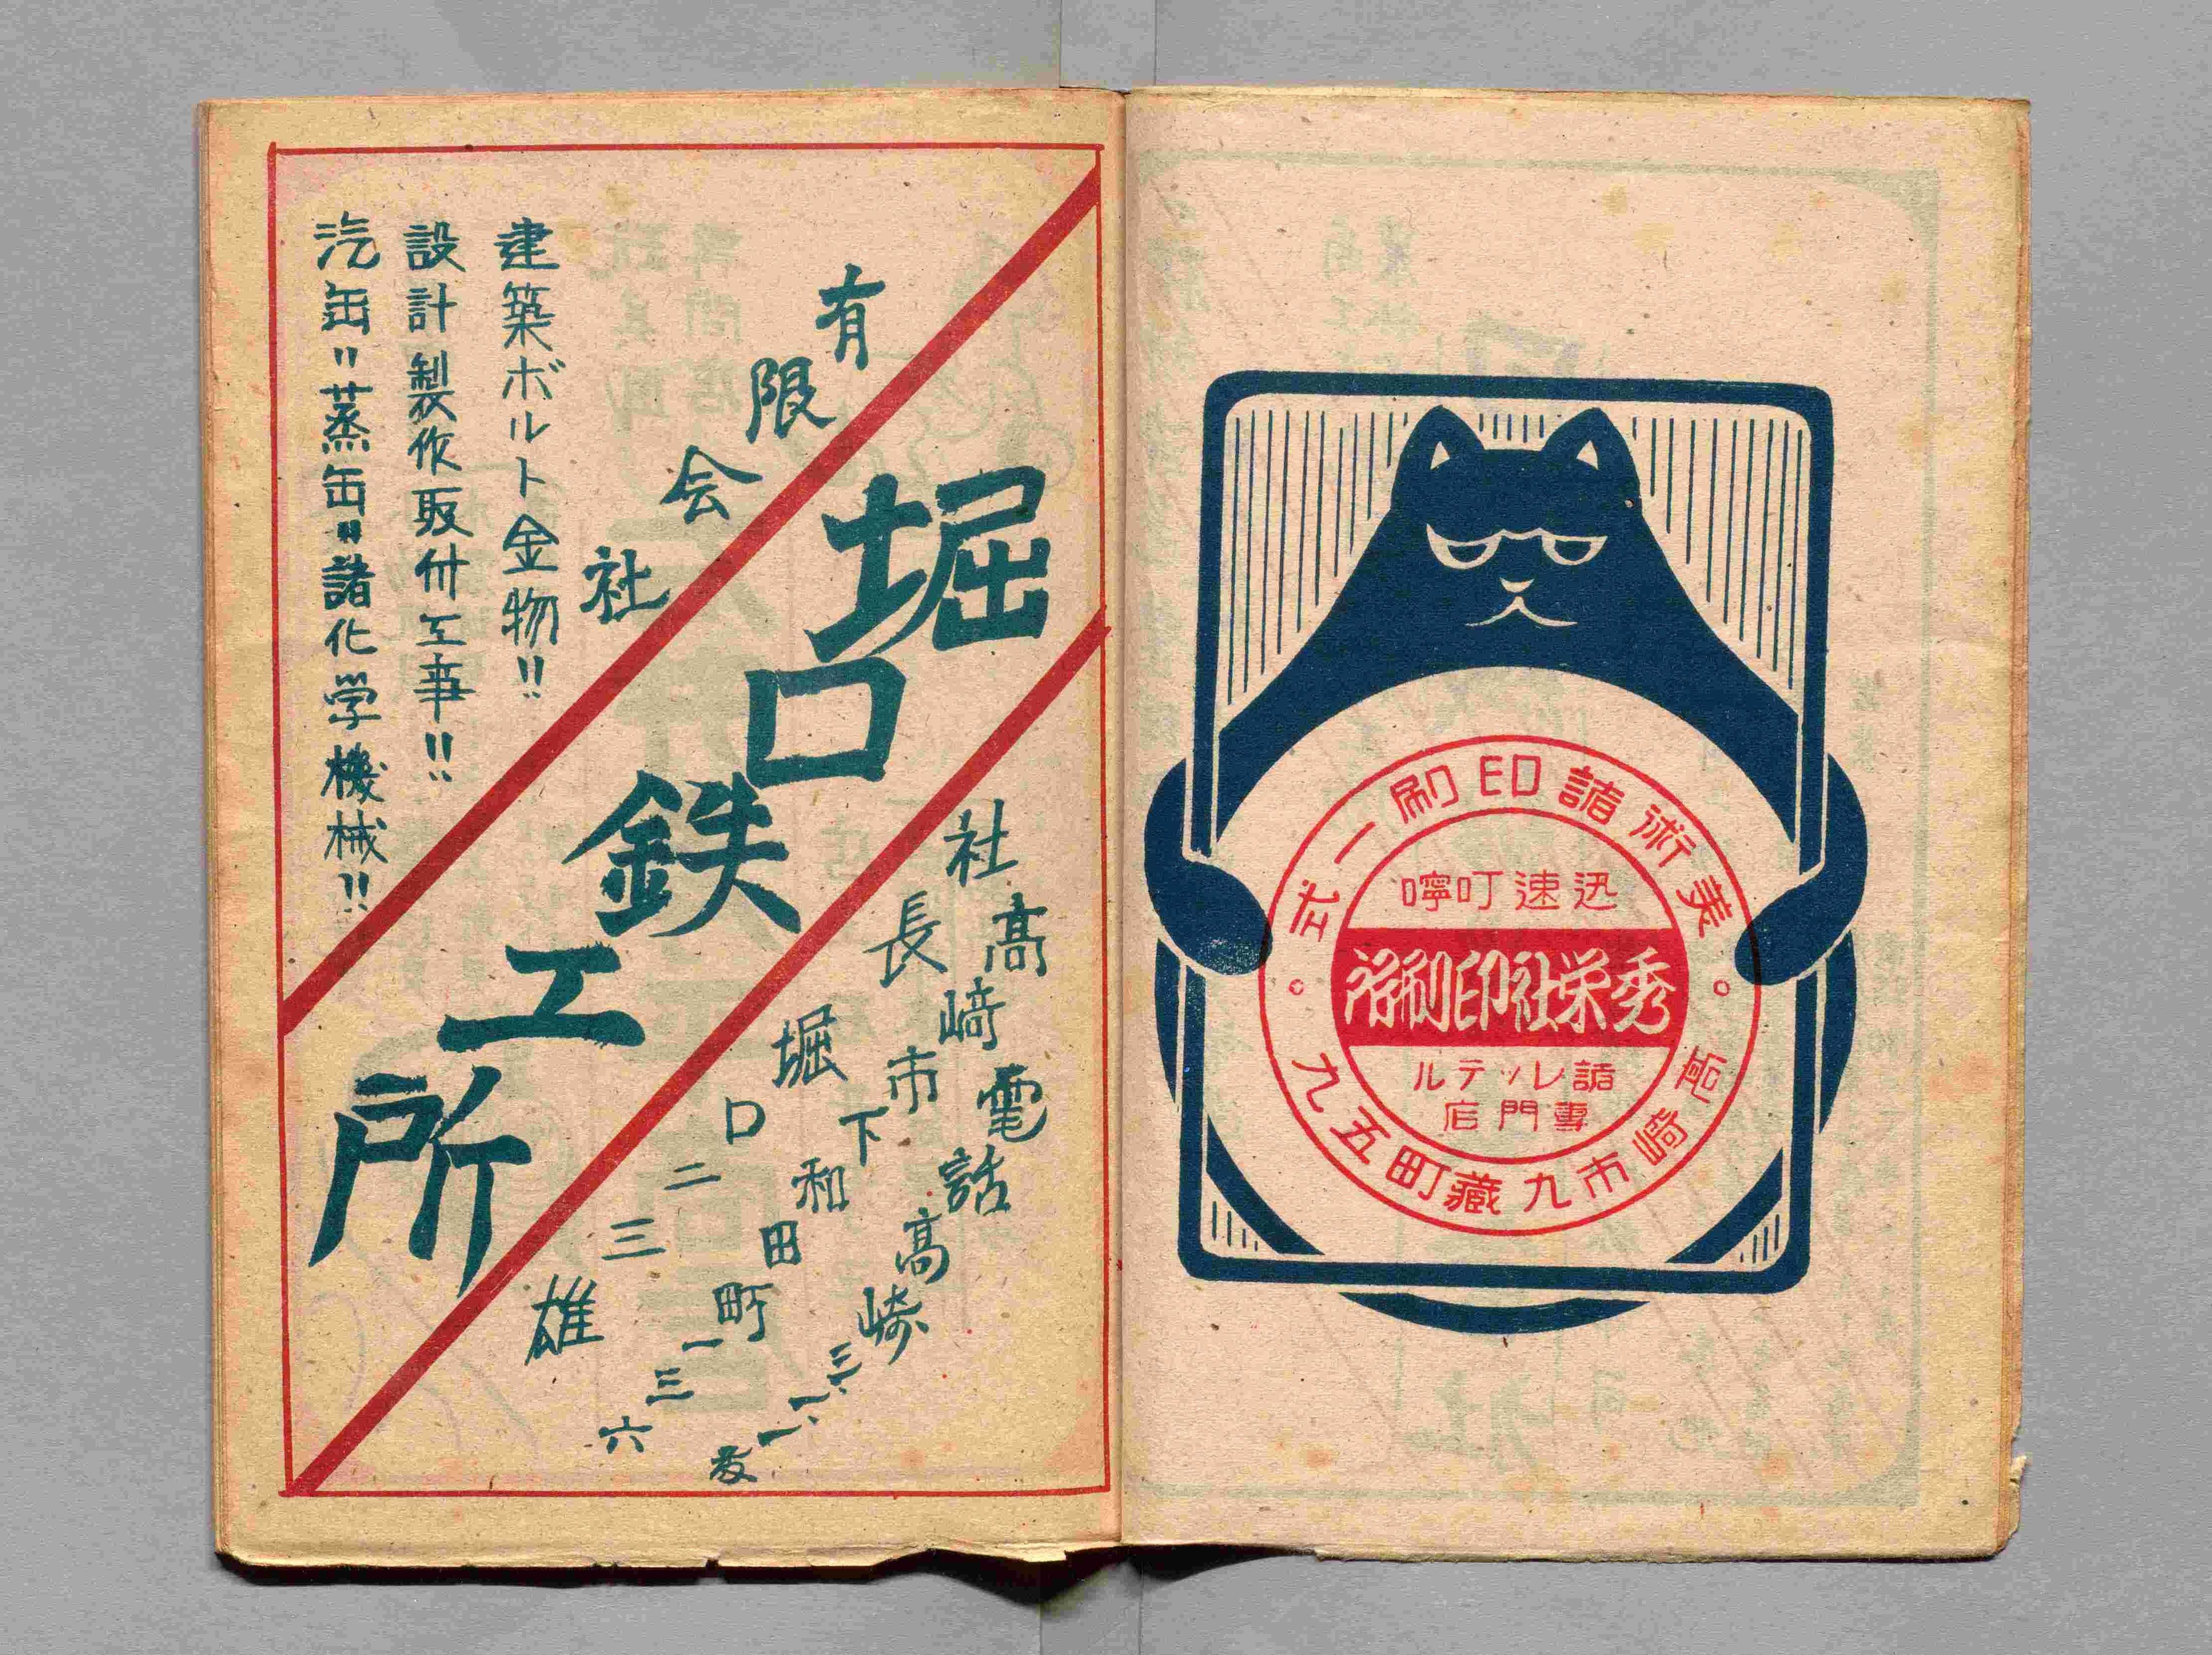 美術諸印刷一式
迅速叮嚀
秀栄社印刷所
諸レッテル
專門店
高崎市九藏町九五
有限会社
堀口鉄工所
建築ボルト金物!!
設計製作取付工事!!
汽缶〃蒸缶〃諸化学機械!!
電話高崎三、一、一番
高崎市下和田町一三六
社長堀口二三雄